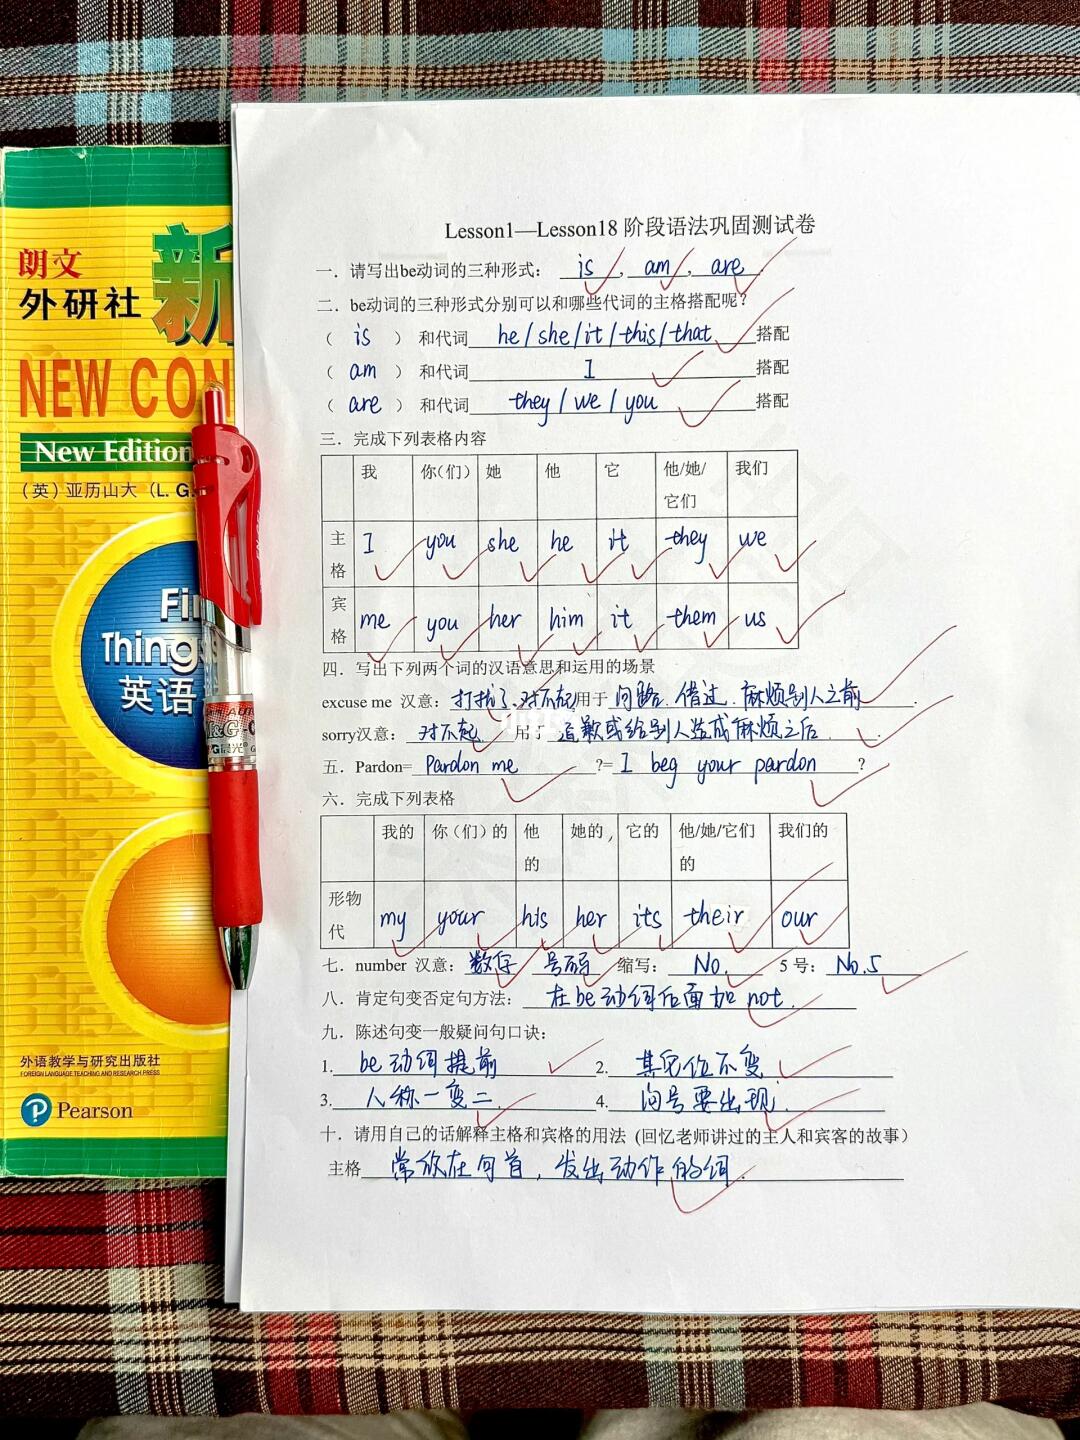 朗文
外研社
新
NEW CON
New Edition
（英）亚历山大（L. G.
Fi
Things
英语
外语教学与研究出版社
FOREIGN LANGUAGE TEACHING AND RESEARCH PRESS
Pearson
M&G
Lesson1—Lesson18 阶段语法巩固测试卷
一. 请写出be动词的三种形式: is, am, are.
二. be动词的三种形式分别可以和哪些代词的主格搭配呢?
（ is ） 和代词 he / she / it / this / that 搭配
（ am ） 和代词 I 搭配
（ are ） 和代词 they / we / you 搭配
三. 完成下列表格内容
我 你(们) 她 他 它 他/她/它们 我们
主格 I you she he it they we
宾格 me you her him it them us
四. 写出下列两个词的汉语意思和运用的场景
excuse me 汉意: 打扰了、对不起 用于 问路、借过、麻烦别人之前.
sorry汉意: 对不起 用于 道歉或给别人造成麻烦之后.
五. Pardon= Pardon me ?= I beg your pardon ?
六. 完成下列表格
我的 你（们）的 他的 她的, 它的 他/她/它们的 我们的
形物代 my your his her its their our
七. number 汉意: 数字 号码 缩写: No. 5 号: No.5
八. 肯定句变否定句方法: 在be动词后面加 not.
九. 陈述句变一般疑问句口诀:
1. be动词提前 2. 其它位不变
3. 人称一变二. 4. 问号要出现.
十. 请用自己的话解释主格和宾格的用法 (回忆老师讲过的主人和宾客的故事）
主格 常放在句首, 发出动作的词.